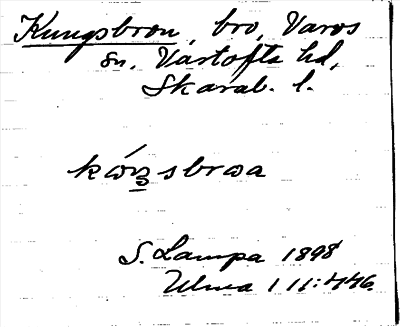 Kungsbron, bro, Varos
sn, Vartofta hd,
Skarab. l.
S. Lampa 1898
Ulma 111:446.